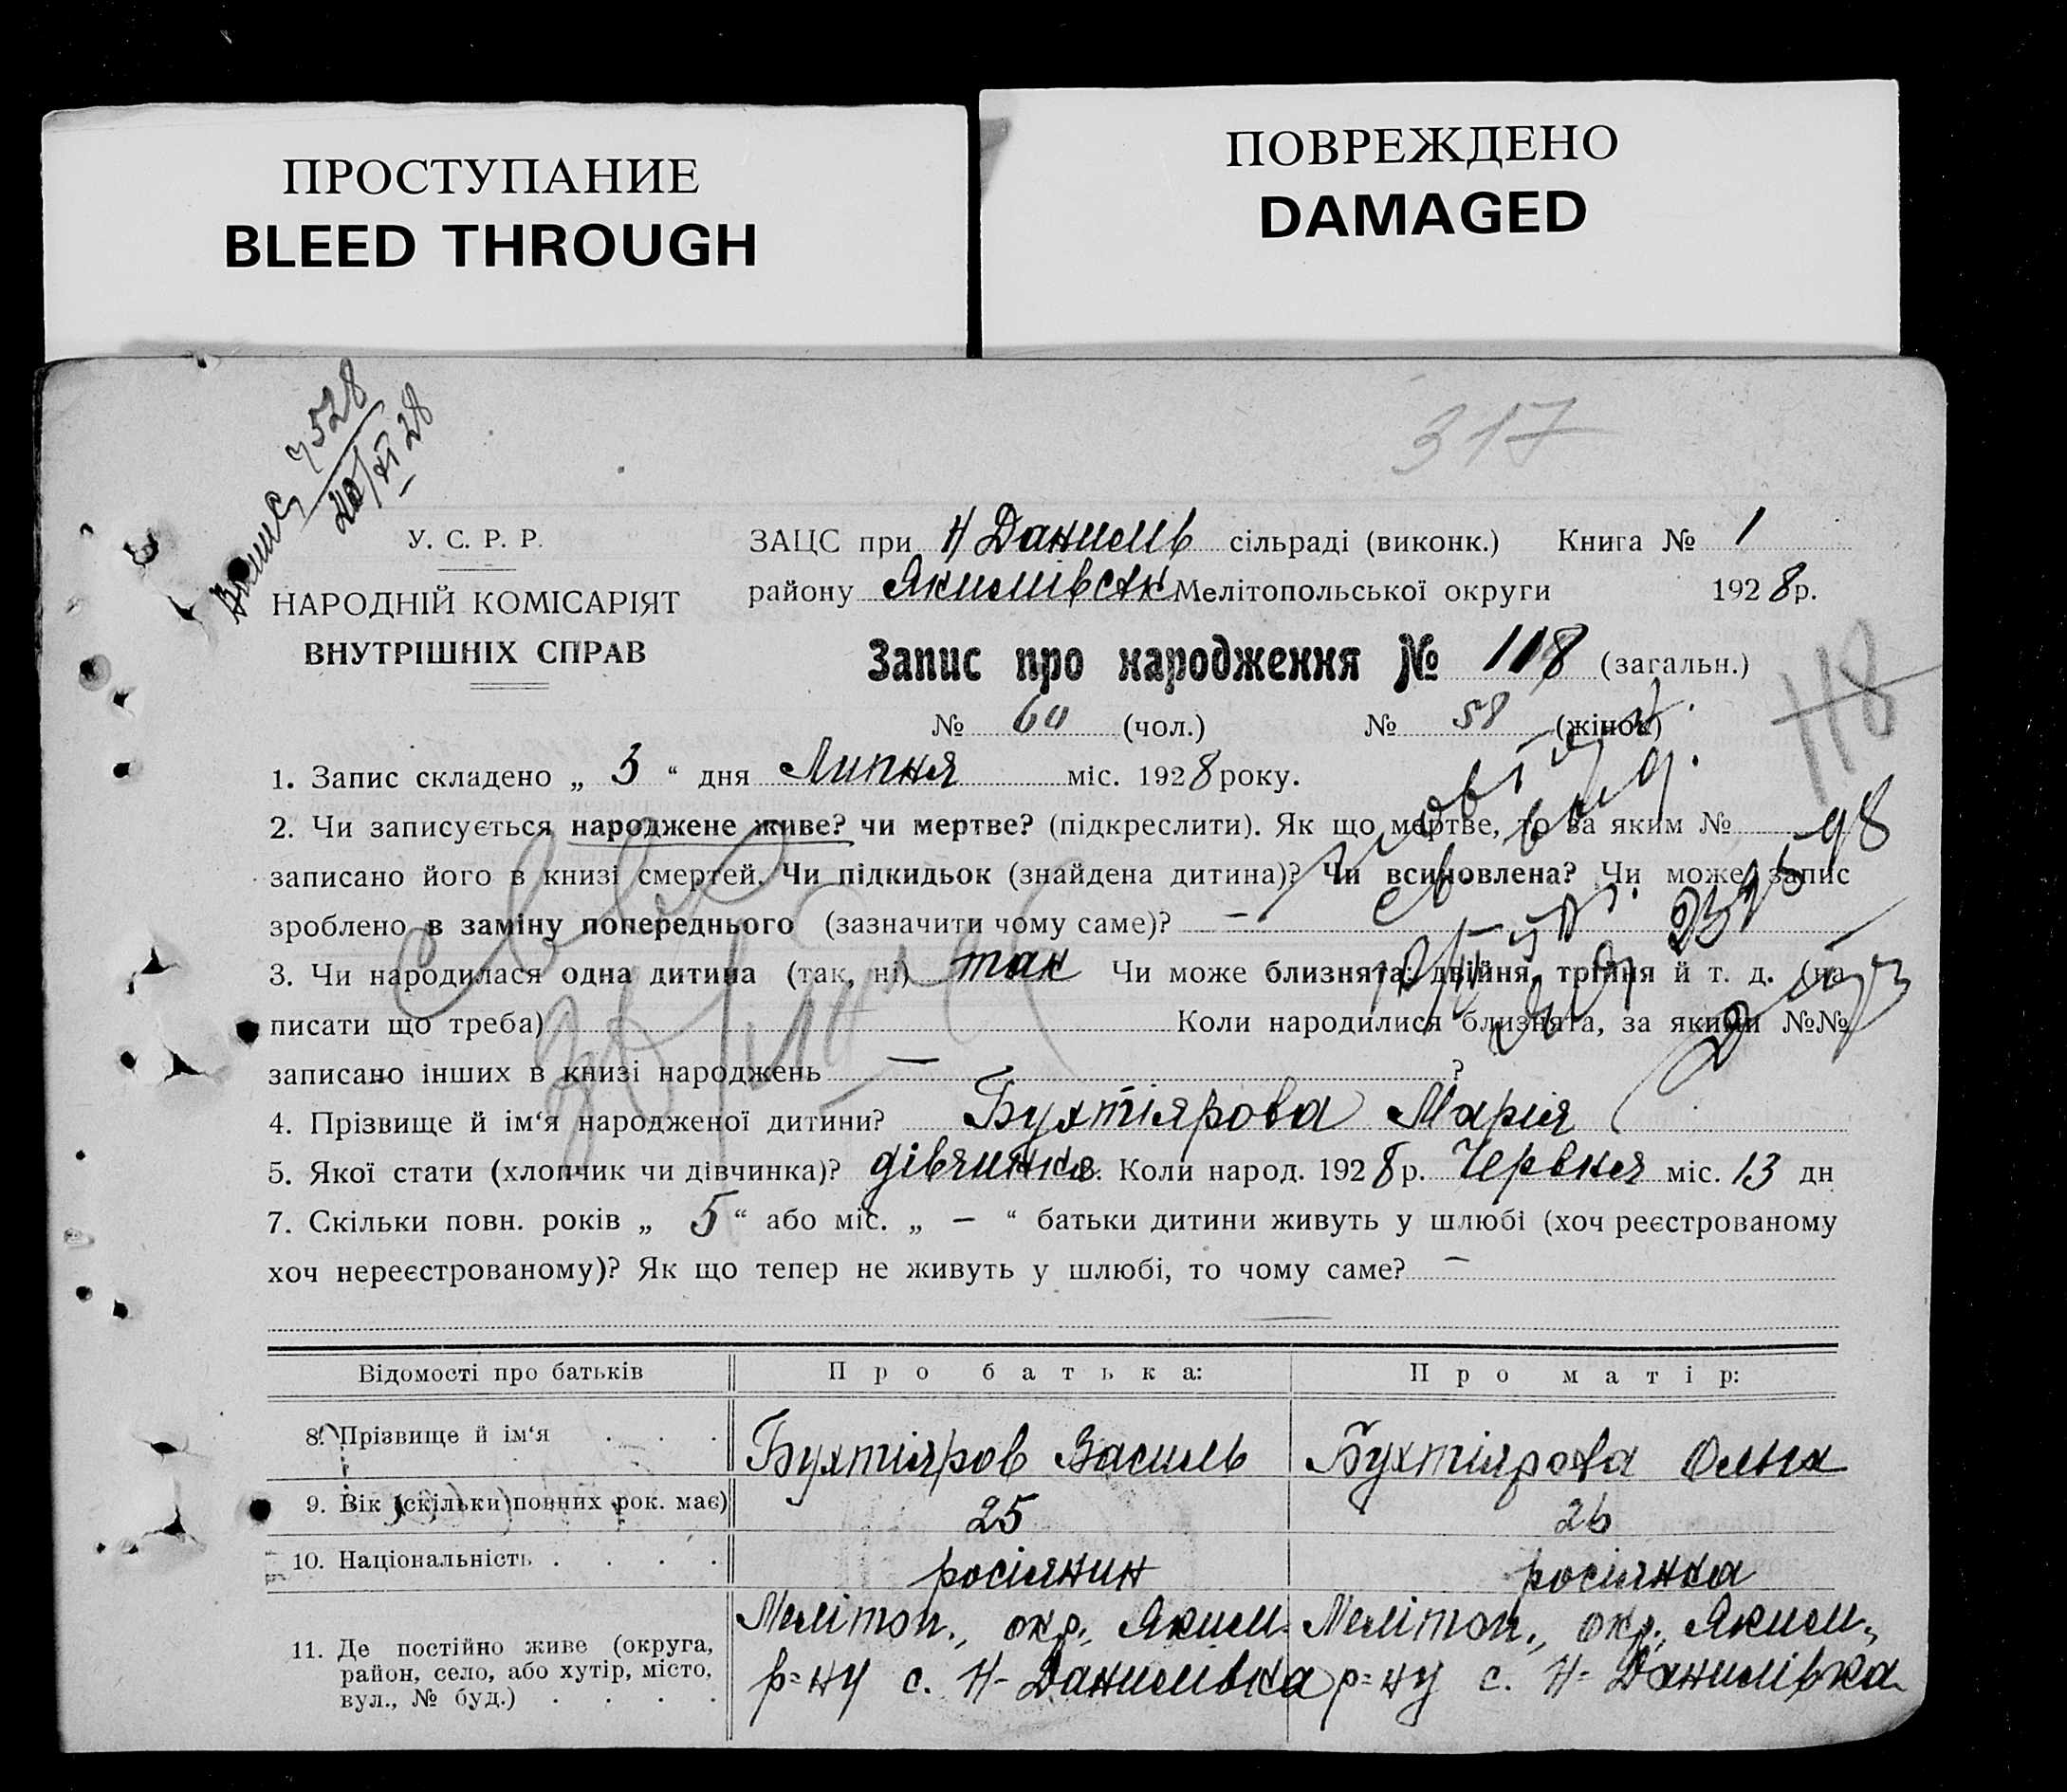 ПРОСТУПАНИЕ
BLEED THROUGH
ПОВРЕЖДЕНО
DAMAGED
528
28
317
У. С. Р. Р.
НАРОДНІЙ КОМІСАРІЯТ
ВНУТРІШНІХ СПРАВ
ЗАЦС при Н Данилів сільраді (виконк.) Книга № 1
району Якимівськ Мелітопольської округи 1928 р.
Запис про народження № 118 (загальн.)
118
№ 60 (чол.) № 58 (жінок)
1. Запис складено „ 3 “ дня Липня міс. 1928 року.
2. Чи записується народжене живе? чи мертве? (підкреслити). Як що мертве, то за яким №
записано його в книзі смертей. Чи підкидьок (знайдена дитина)? Чи всиновлена? Чи може запис
зроблено в заміну попереднього (зазначити чому саме)? —
3. Чи народилася одна дитина (так, ні) так Чи може близнята: двійня, трійня й т. д. (на
писати що треба) Коли народилися близнята, за якими №№
записано інших в книзі народжень — ?
4. Прізвище й ім‘я народженої дитини? Бухтіярова Марія
5. Якої стати (хлопчик чи дівчинка)? дівчинка. Коли народ. 1928 р. Червня міс. 13 дн
7. Скільки повн. років „ 5 “ або міс. „ — “ батьки дитини живуть у шлюбі (хоч реєстрованому
хоч нереєстрованому)? Як що тепер не живуть у шлюбі, то чому саме? —
Відомості про батьків Про батька: Про матір:
8. Прізвище й ім‘я Бухтіяров Василь Бухтіярова Ольга
9. Вік (скільки повних рок. має) 25 26
10. Національність росіянин росіянка
11. Де постійно живе (округа, район, село, або хутір, місто, вул., № буд.)
Меліtоп., окр., Яким. р=ну с. Н-Данилівка
Мелітоп., окр., Яким., р=ну с. Н-Данилівка